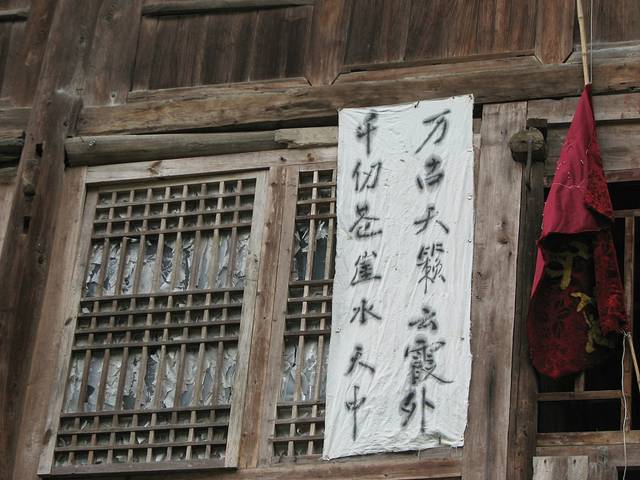 万古天籁云霞外
千仞苍崖水天中